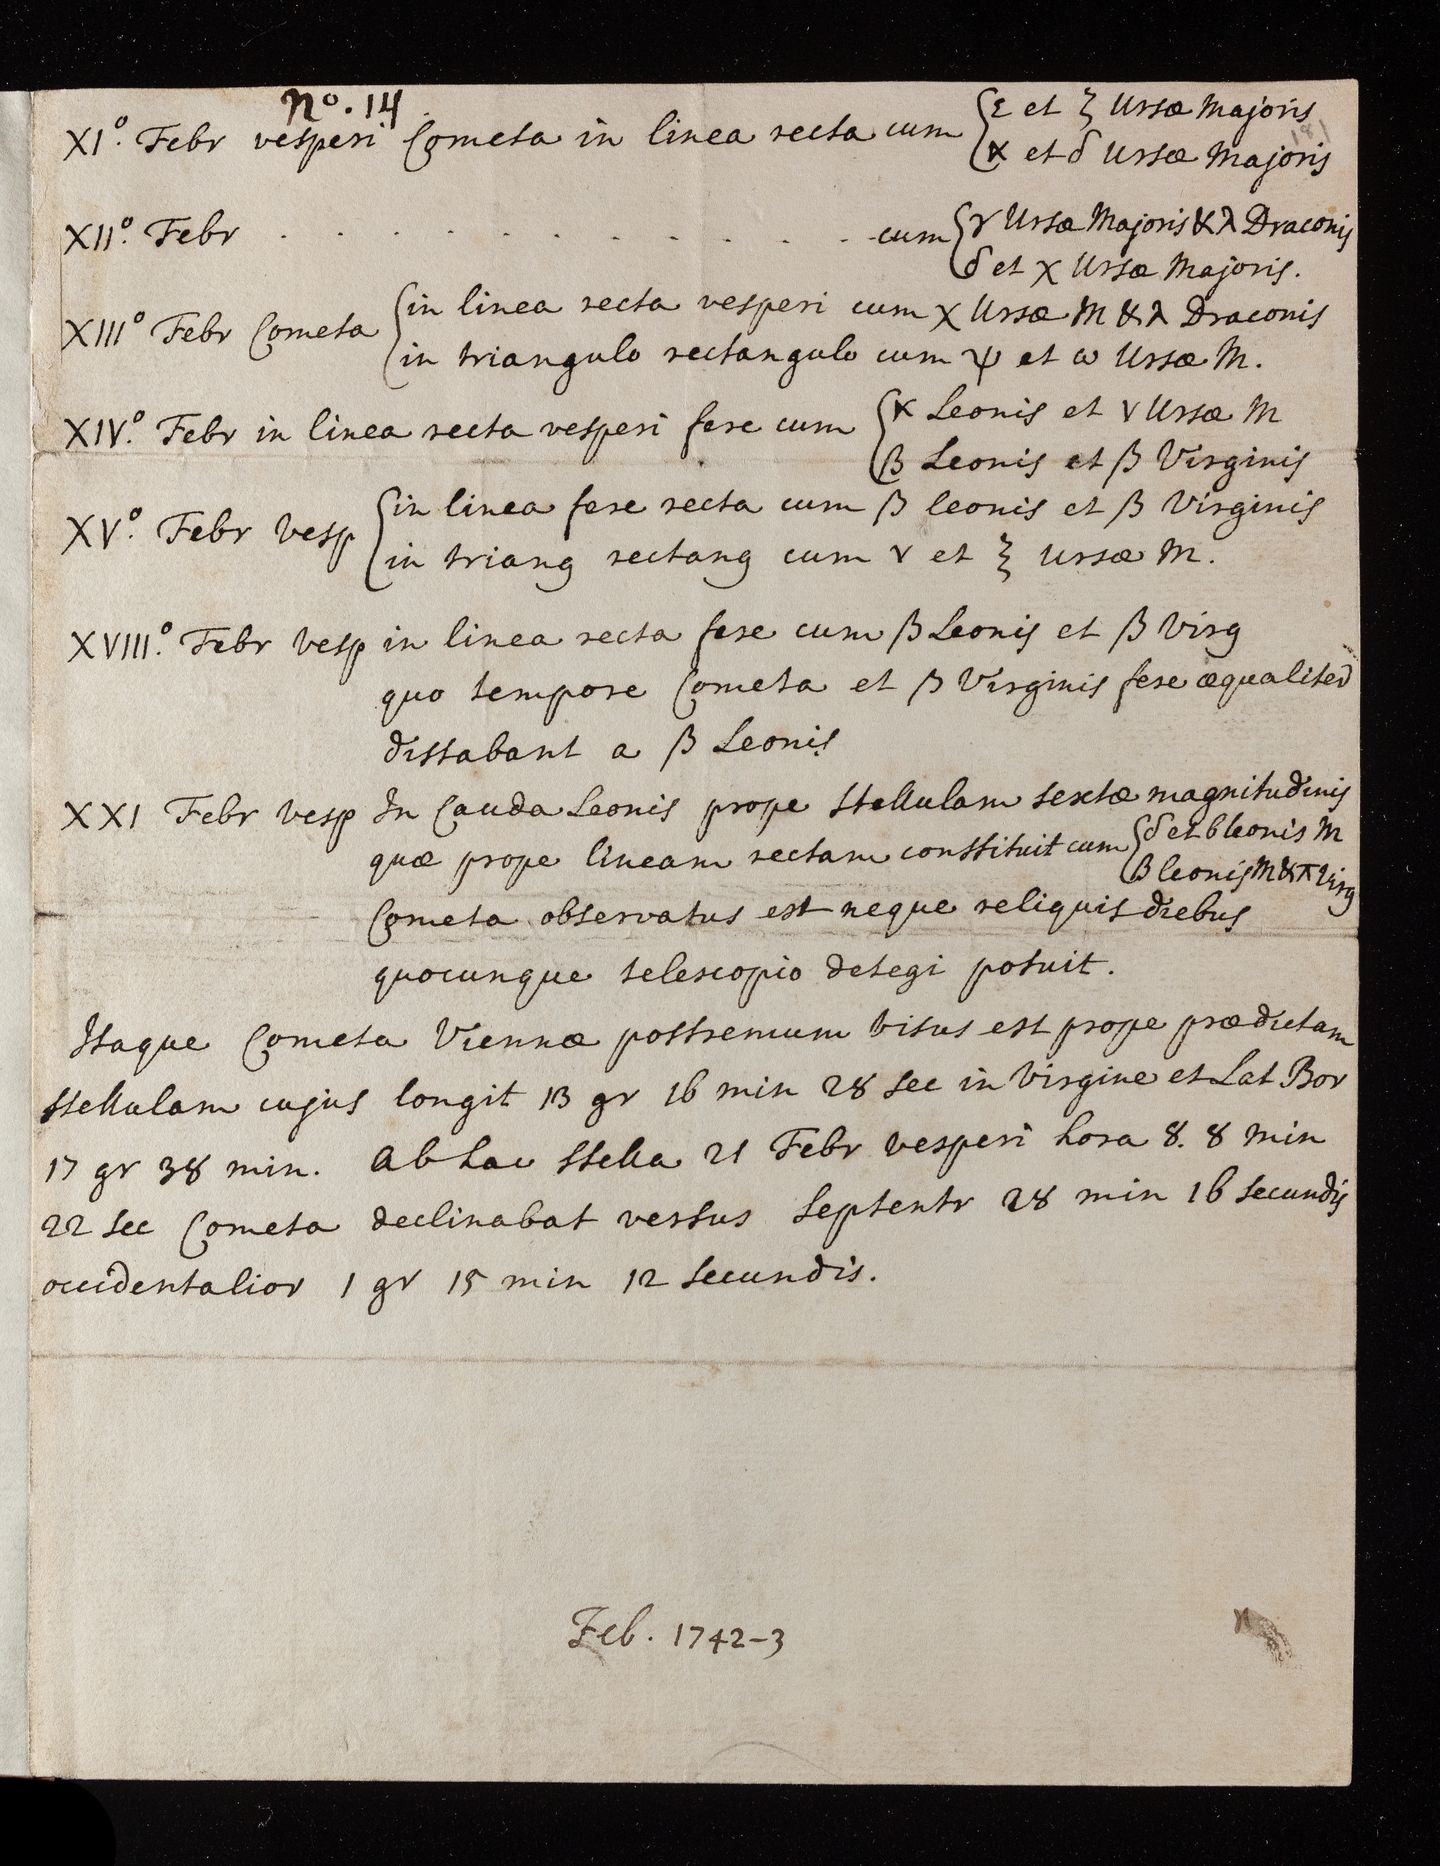 No. 14
XI.o Febr vesperi Cometa in linea recta cum { ε et ζ Ursæ Majoris
α et δ Ursæ Majoris
XII.o Febr . . . . . . . . . . . cum { γ Ursæ Majoris & λ Draconis
δ et χ Ursæ Majoris.
XIIIo Febr Cometa { in linea recta vesperi cum χ Ursæ M & λ Draconis
in triangulo rectangulo cum ψ et ω Ursæ M.
XIV.o Febr in linea recta vesperi fere cum { α Leonis et ν Ursæ M
β Leonis et β Virginis
XV.o Febr vesp { in linea fere recta cum β leonis et β Virginis
in triang rectang cum ν et ξ Ursæ M.
XVIII.o Febr vesp in linea recta fere cum β Leonis et β Virg
quo tempore Cometa et β Virginis fere æqualiter
distabant a β Leonis
XXI Febr vesp In Cauda Leonis prope stellulam sextæ magnitudinis
quæ prope lineam rectam constituit cum { δ et b leonis M
β leonis M & π Virg
Cometa observatus est neque reliquis diebus
quocunque telescopio detegi potuit.
Itaque Cometa Viennæ postremum visus est prope prædictam
stellulam cujus longit 13 gr 16 min 28 sec in Virgine et Lat Bor
17 gr 38 min. Ab hac stella 21 Febr vesperi hora 8. 8 min
22 sec Cometa declinabat versus Septentr 28 min 16 secundis
occidentalior 1 gr 15 min 12 secundis.
Feb. 1742-3